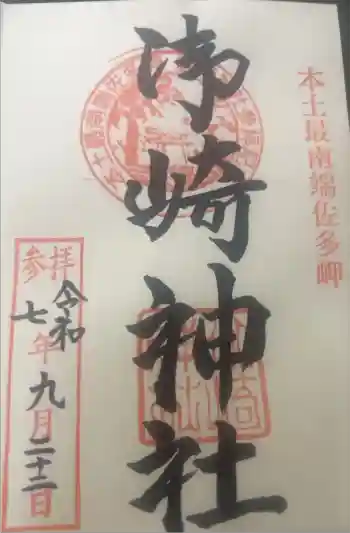 本土最南端佐多岬
御崎神社
参拝
令和
七年九月二十二日